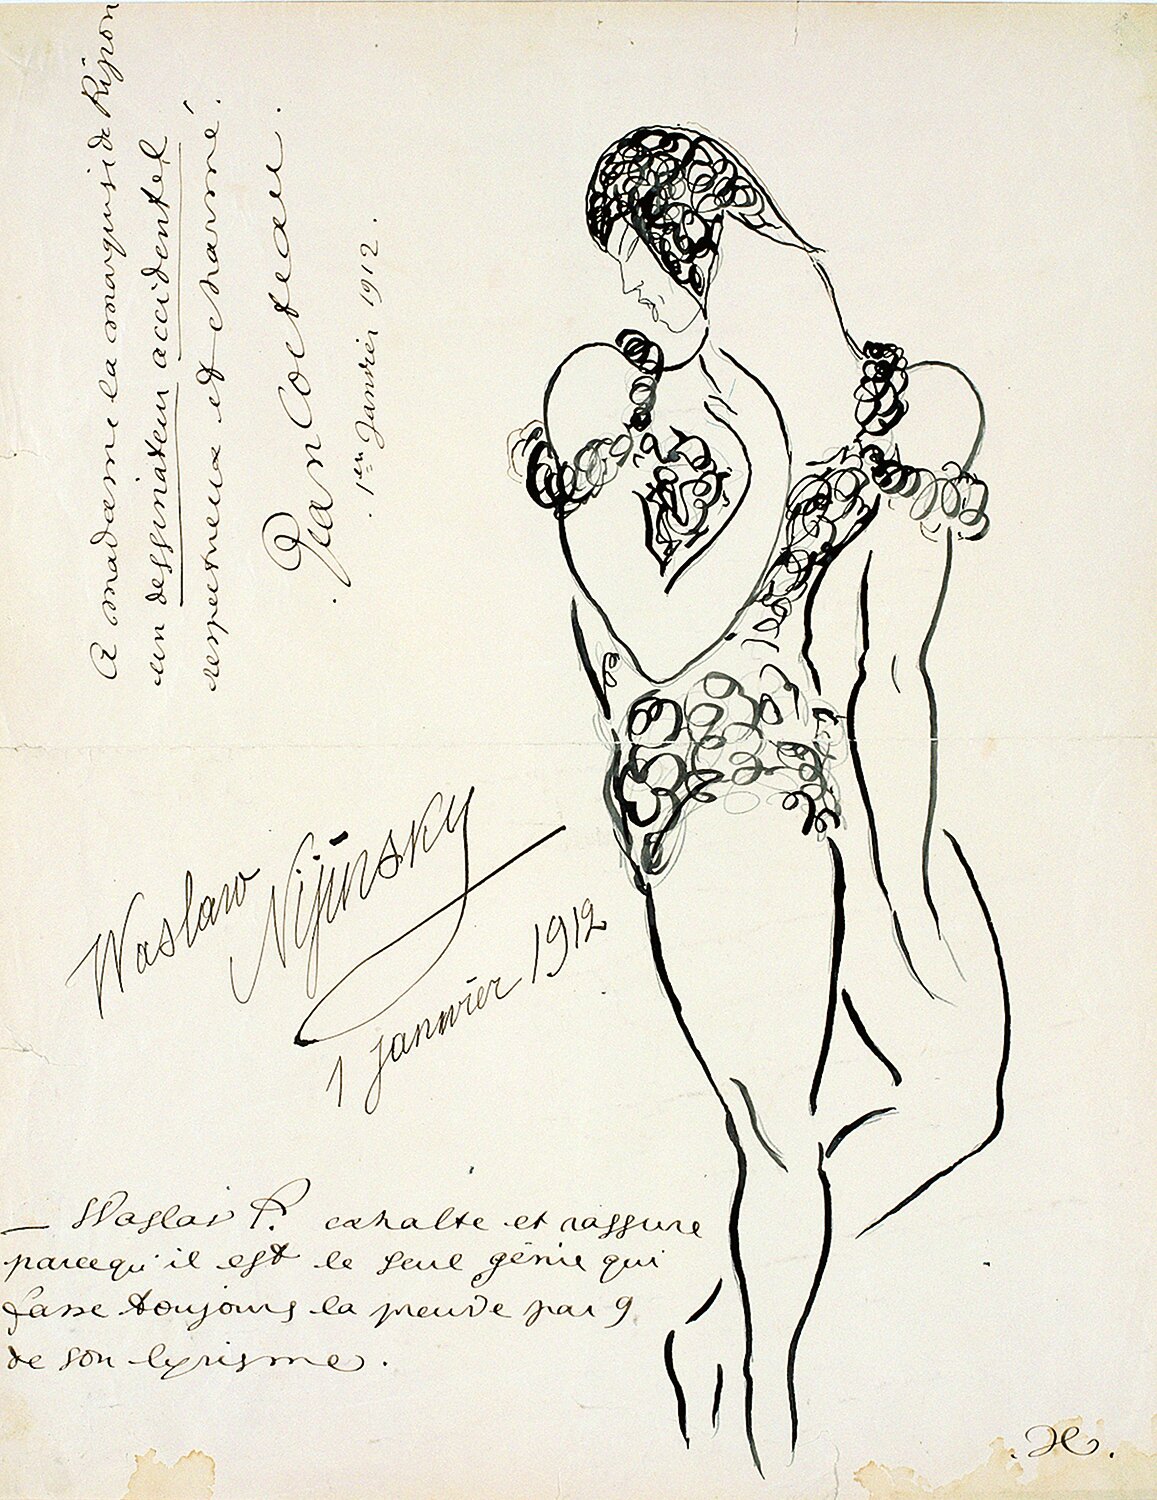 A madame la marquise de Ripon
un dessinateur accidentel
respectueux et charmé.
Jean Cocteau.
1er Janvier 1912.
Waslaw
Nijinsky
1 janvier 1912
— Waslav exhalte et rassure
parcequ'il est le seul génie qui
fasse toujours la preuve par 9
de son lyrisme.
JC.